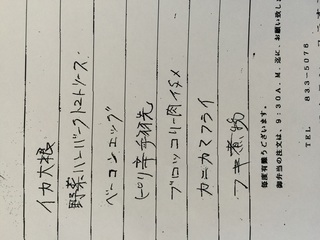 イカ大根
野菜ハンバーグトマトソース
ベーコンエッグ
ピリ辛手羽先
ブロッコリー肉イタメ
カニカマフライ
フキ煮物
毎度有難うございます。
御弁当の注文は、9:30A.M.迄に、お願い致し
TEL 833-5076